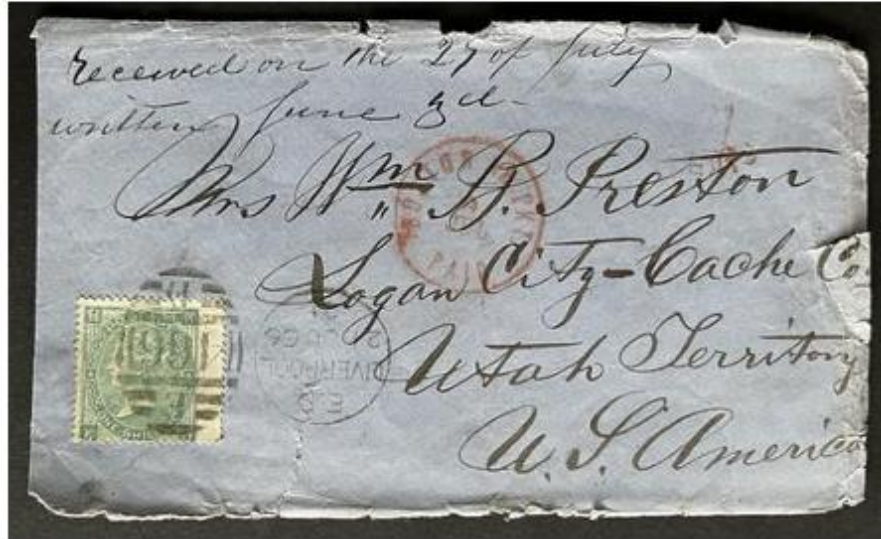 received on the 27 of July
written June 3d-
Mrs Wm B. Preston
Logan City-Cache Co.
Utah Territory
U. S. America
PAID
LIVERPOOL